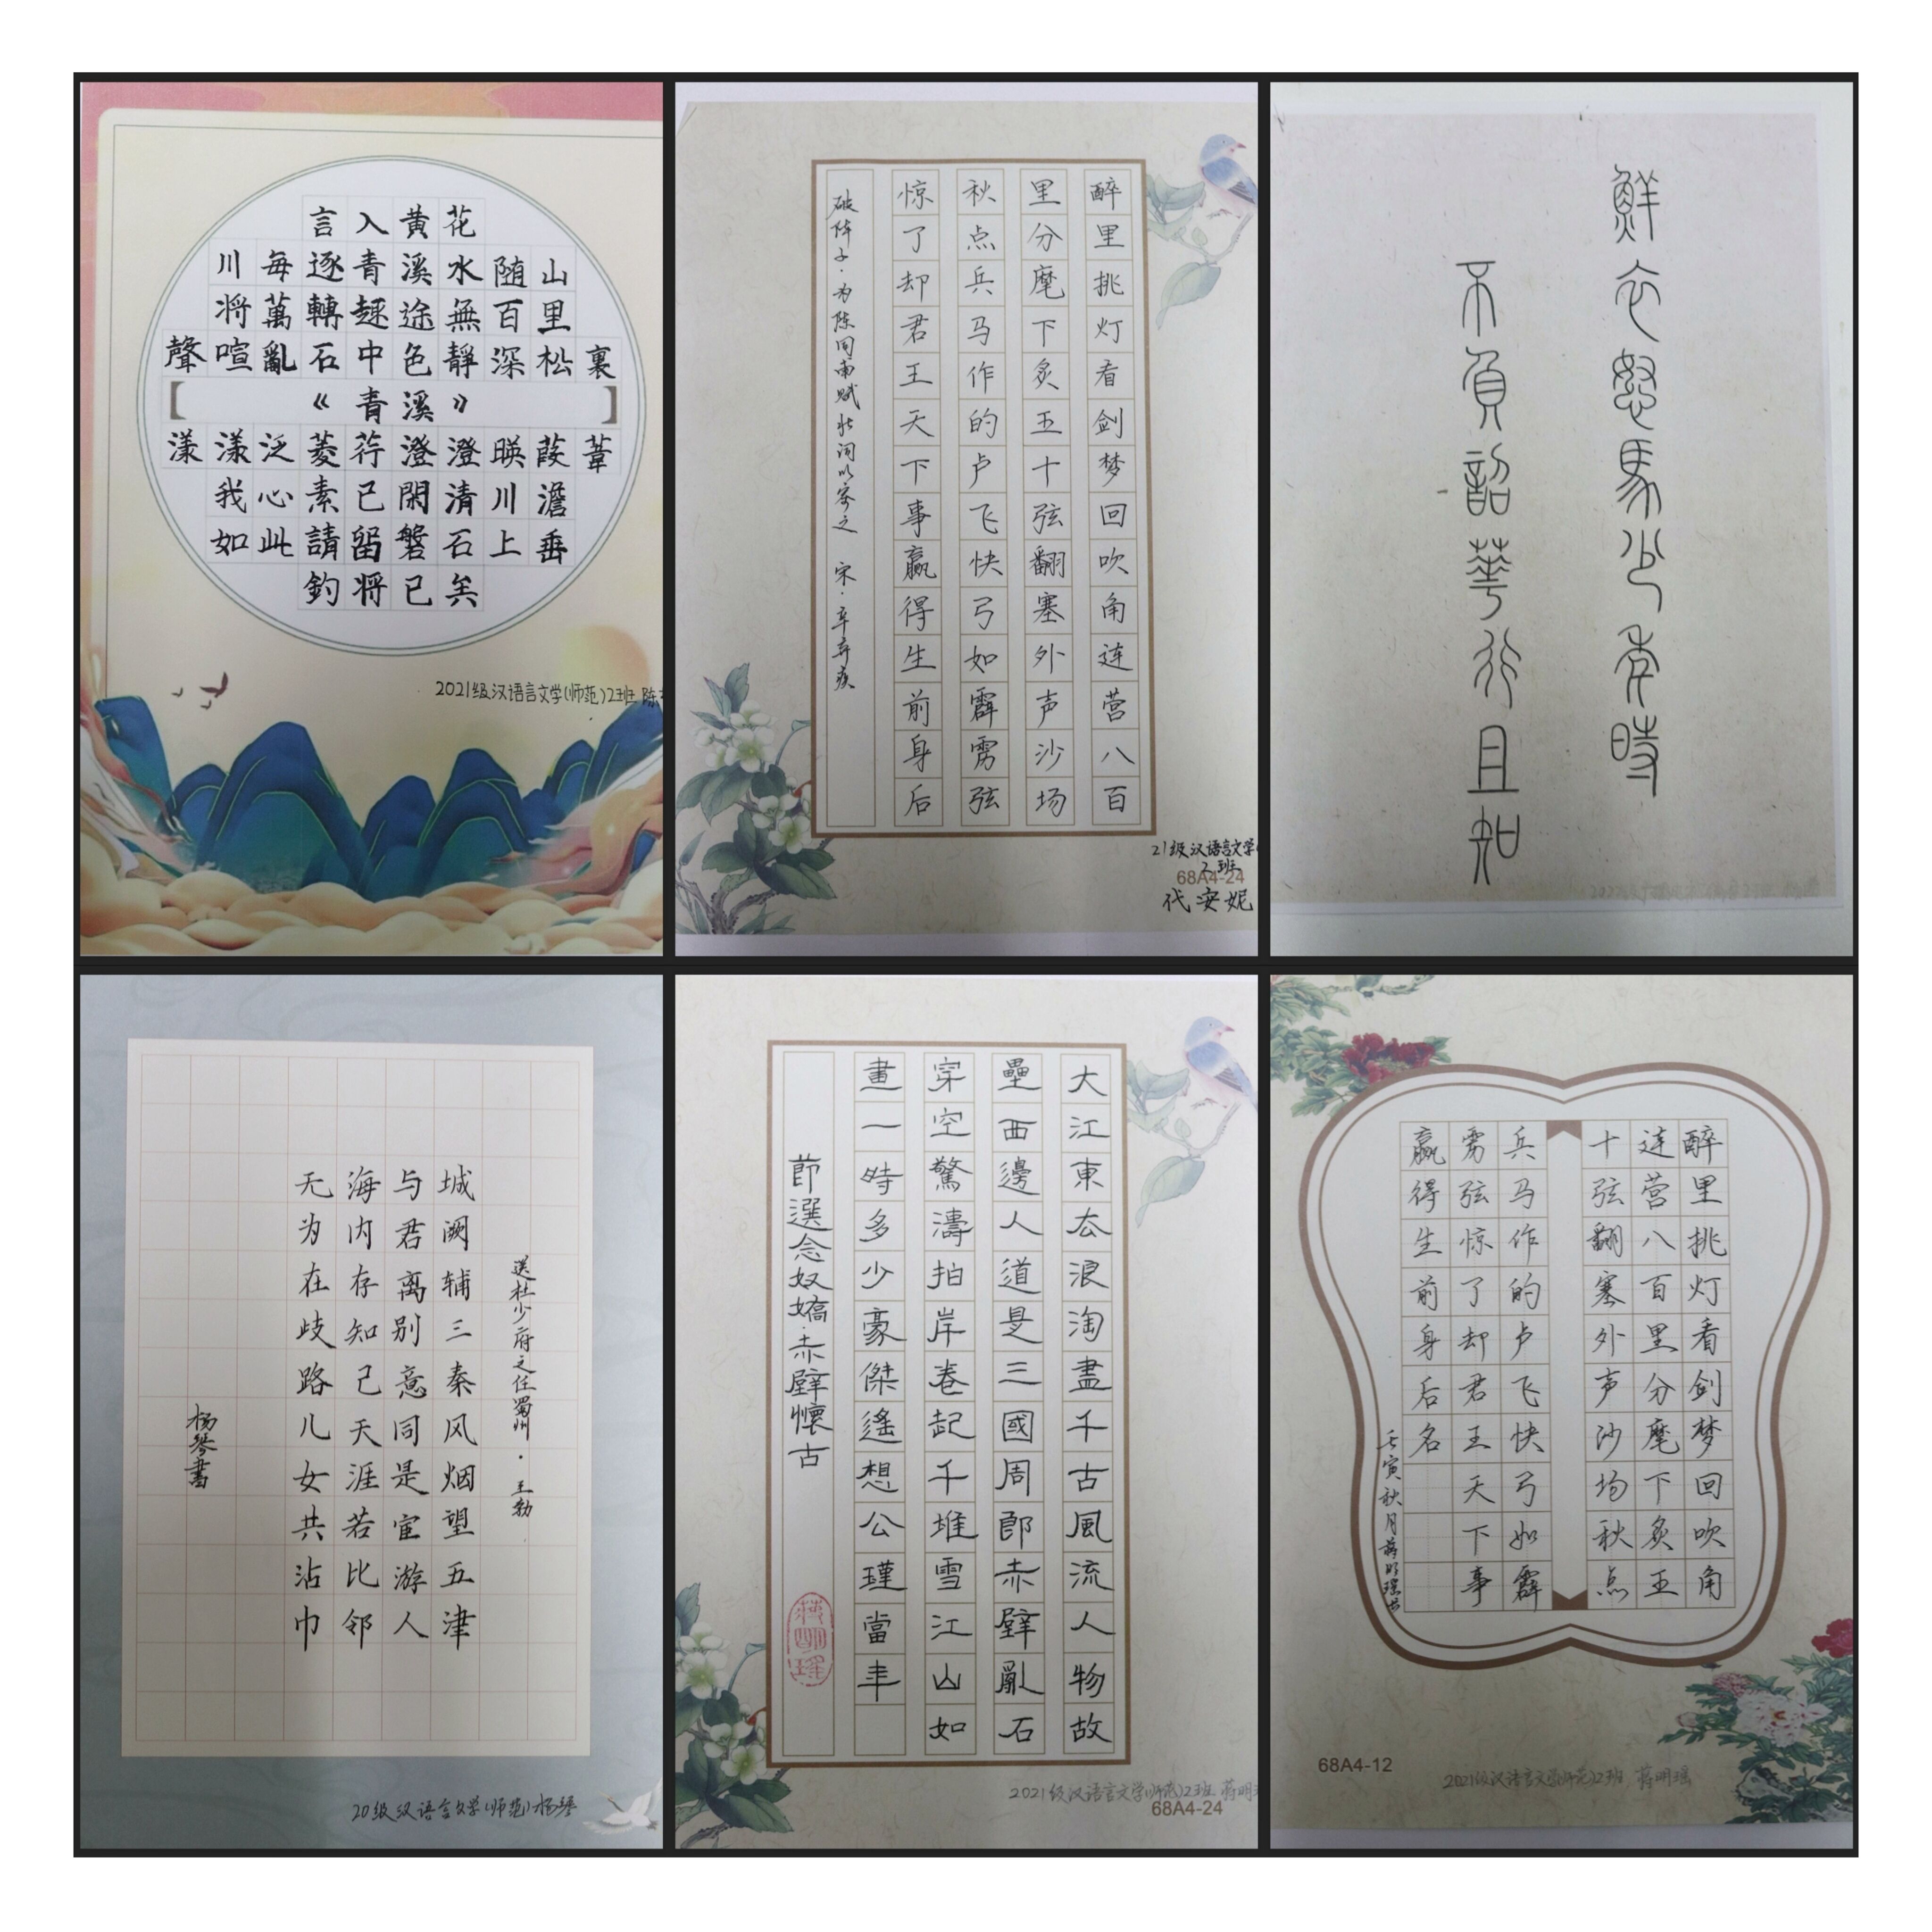 言入黄花
川每逐青溪水随山
将萬轉趣途無百里
聲喧亂石中色靜深松裏
《青溪》
漾漾泛菱荇澄澄暎葭葦
我心素已閑清川澹
如此請留磐石上垂
釣将已矣
2021级汉语言文学(师范)2班 陈
醉里挑灯看剑梦回吹角连营八百
里分麾下炙五十弦翻塞外声沙场
秋点兵马作的卢飞快弓如霹雳弦
惊了却君王天下事赢得生前身后
破阵子·为陈同甫赋壮词以寄之 宋·辛弃疾
21级汉语言文学
2班
68A4-24
代安妮
鮮衣怒馬少年時
不負韶華行且知
送杜少府之任蜀州·王勃
城阙辅三秦风烟望五津
与君离别意同是宦游人
海内存知己天涯若比邻
无为在歧路儿女共沾巾
杨琴書
20级汉语言文学(师范)杨琴
大江東去浪淘盡千古風流人物故
壘西邊人道是三國周郎赤壁亂石
穿空驚濤拍岸卷起千堆雪江山如
畫一時多少豪傑遙想公瑾當年
節選念奴嬌·赤壁懷古
蒋明瑶
2021级汉语言文学(师范)2班 蒋明
68A4-24
醉里挑灯看剑梦回吹角
连营八百里分麾下炙五
十弦翻塞外声沙场秋点
兵马作的卢飞快弓如霹
雳弦惊了却君王天下事
赢得生前身后名
壬寅秋月蒋明瑶书
68A4-12
2021级汉语言文学(师范)2班 蒋明瑶